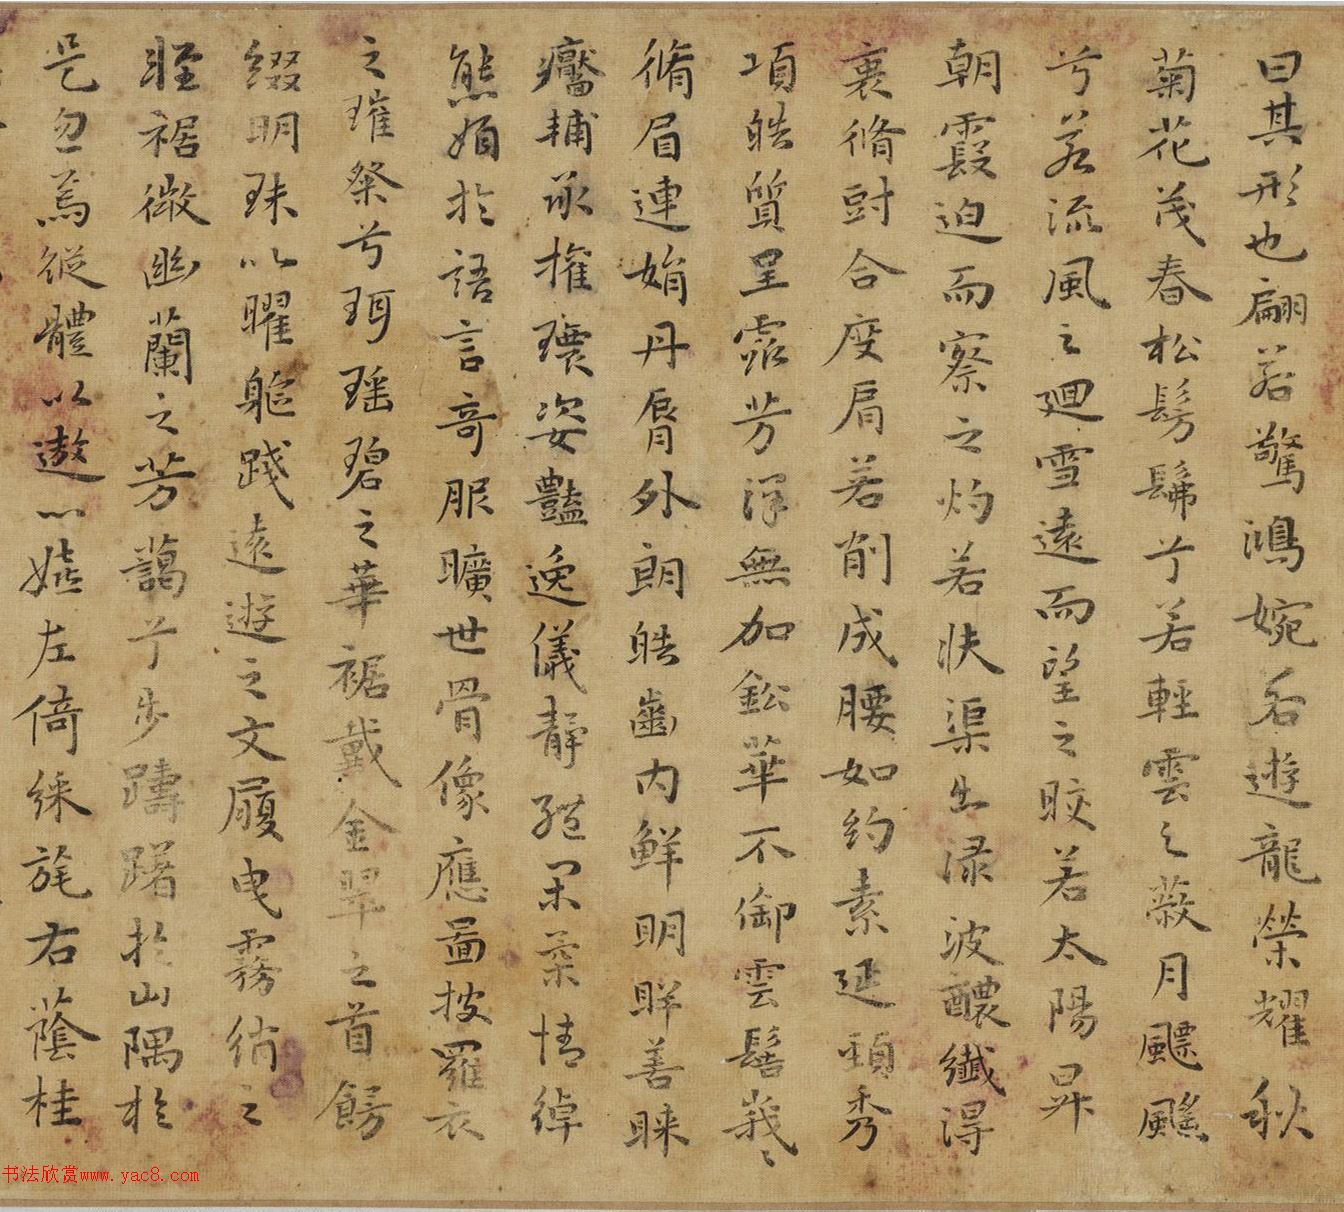 曰其形也翩若驚鴻婉若遊龍榮耀秋
菊花茂春松髣髴兮若輕雲之蔽月飄颻
兮若流風之廻雪遠而望之皎若太陽昇
朝霞迫而察之灼若芙渠出淥波醲纖得
衷脩尌合度肩若削成腰如約素延頸秀
項皓質呈露芳澤無加鈆華不御雲髻峩〻
脩眉連娟丹脣外朗皓齒內鮮明眸善睞
靨輔承權瓌姿豔逸儀靜體閑柔情綽
態媚於語言奇服曠世骨像應圖披羅衣
之璀粲兮珥瑶碧之華裾戴金翠之首餝
綴明珠以曜軀踐遠遊之文履曳霧綃之
輕裾微幽蘭之芳藹兮步躊躇於山隅於
是忽焉縱體以遨以嬉左倚綵旄右蔭桂
书法欣赏www.yac8.com